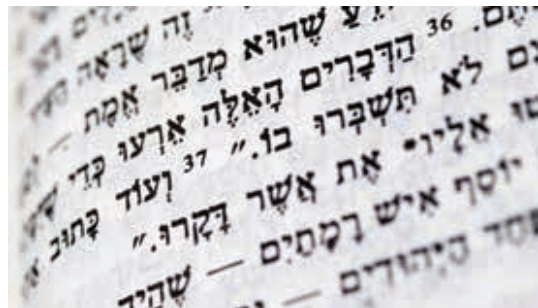 זֶה שֶׁרָאָה
שֶׁהוּא מְדַבֵּר אֱמֶת —
36 הַדְּבָרִים הָאֵלֶּה אֵרְעוּ כְּדֵי
לֹא תִּשְׁבְּרוּ בוֹ.״ 37 וְעוֹד כָּתוּב
אֵלָיו* אֵת אֲשֶׁר דָּקָרוּ.״
יוֹסֵף אִישׁ רָמָתַיִם — שֶׁהָיָה
הַיְּהוּדִים —